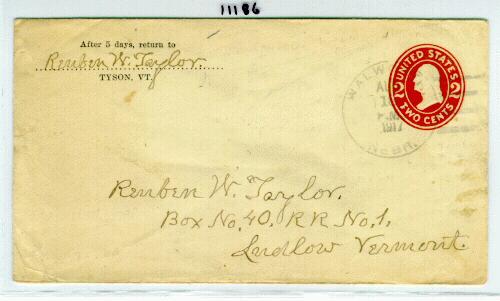 11186
After 5 days, return to
Reuben W. Taylor.
TYSON, VT.
UNITED STATES
2 2
TWO CENTS
1917
NEBR.
Reuben W. Taylor.
Box No. 40, RR No. 1,
Ludlow Vermont.